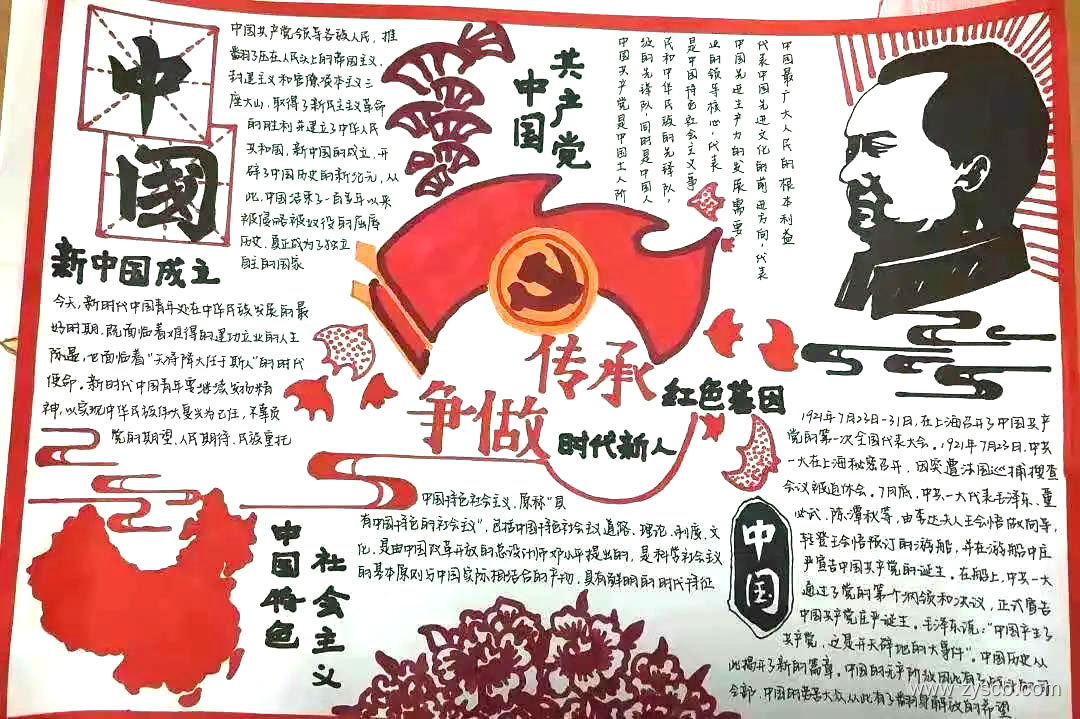 中
国
新中国成立
中国共产党领导各族人民，推
翻了压在人民头上的帝国主义，
封建主义和官僚资本主义三
座大山，取得了新民主主义革命
的胜利并建立了中华人民
共和国，新中国的成立，开
辟了中国历史的新纪元，从
此，中国结束了一百多年以来
被侵略被奴役的屈辱
历史，真正成为了独立
自主的国家
共产党
中国
中国最广大人民的根本利益
代表中国先进文化的前进方向，代表
中国先进生产力的发展需要
业的领导核心，代表
是中国特色社会主义事
民和中华民族的先锋队，
级的先锋队，同时是中国人
中国共产党是中国工人阶
传承
红色基因
争做
时代新人
今天，新时代中国青年处在中华民族发展的最
好时期，既面临着难得的建功立业的人生
际遇，也面临着“天将降大任于斯人”的时代
使命。新时代中国青年要继续发扬精
神，以实现中华民族伟大复兴为己任，不辜负
党的期望、人民期待、民族重托
社会主义
中国特色
中国特色社会主义，原称“具
有中国特色的社会主义”，包括中国特色社会主义道路、理论、制度、文
化，是由中国改革开放的总设计师邓小平提出的，是科学社会主义
的基本原则与中国实际相结合的产物，具有鲜明的时代特征
中国
1921年7月23日-31日，在上海召开了中国共产
党的第一次全国代表大会。1921年7月23日，中共
一大在上海秘密召开，因突遭法国巡捕搜查
会议被迫休会。7月底，中共一大代表毛泽东、董
必武、陈潭秋等，由李达夫人王会悟做向导，
轻登王会悟预订的游船，并在游船中庄
严宣告中国共产党的诞生。在船上，中共一大
通过了党的第一个纲领和决议，正式宣告
中国共产党庄严诞生。毛泽东说：“中国产生了
共产党，这是开天辟地的大事件”。中国历史从
此揭开了新的篇章。中国的无产阶级因此有了
令部，中国的劳苦大众从此有了翻身解放的希望
www.zyscb.com